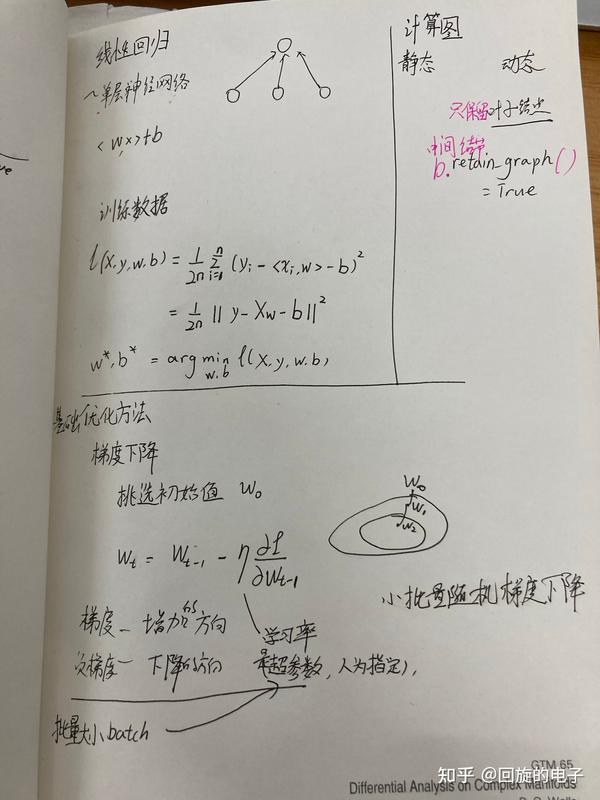 线性回归
~单层神经网络
<w,x>+b
训练数据
l(X,y,w,b) = 1/2n Σ_{i=1}^{n} (y_i - <x_i,w> - b)²
= 1/2n ||y - Xw - b||²
w*,b* = arg min_{w,b} l(X,y,w,b)
计算图
静态 动态
只保留叶子结点
中间结节
b.retain_graph()
= True
基础优化方法
梯度下降
挑选初始值 w₀
w_t = w_{t-1} - η ∂l/∂w_{t-1}
w₀
w₁
w₂
小批量随机梯度下降
梯度— 增加的方向
学习率
负梯度— 下降的方向
是超参数,人为指定),
批量大小batch
GTM 65
Differential Analysis on Complex Manifolds
知乎 @回旋的电子